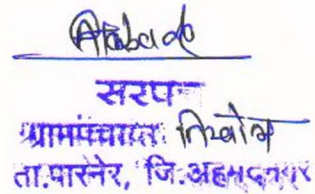 सरपंच
ग्रामपंचायत निघोज
ता.पारनेर, जि.अहमदनगर